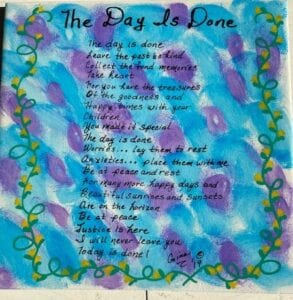 The Day Is Done
The day is done
Leave the past behind
Collect the fond memories
Take heart
For you have the treasures
Of the goodness and
Happy times with your
Children
You made it special
The day is done
Worries... lay them to rest
Anxieties... place them with me
Be at peace and rest
For many more happy days and
Beautiful sunrises and sunsets
Are on the horizon
Be at peace
Justice is here
I will never leave you
Today is done!
©